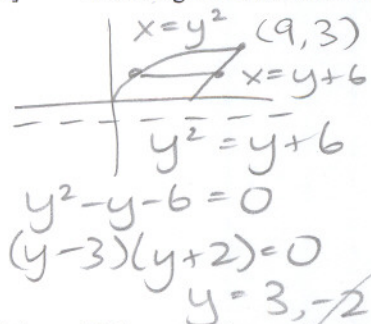 x=y² (9,3)
x=y+6
y²=y+6
y²-y-6=0
(y-3)(y+2)=0
y=3,-2